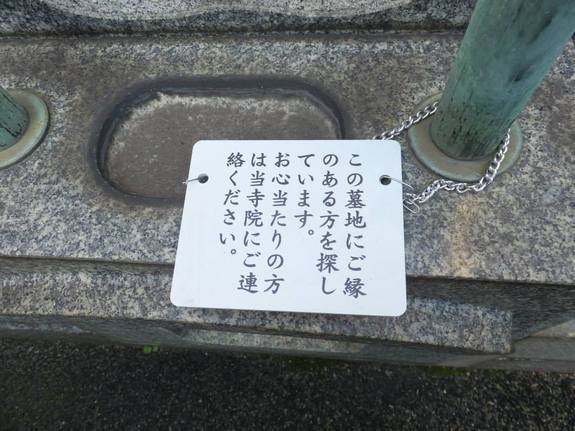 この墓地にご縁
のある方を探し
ています。
お心当たりの方
は当寺院にご連
絡ください。